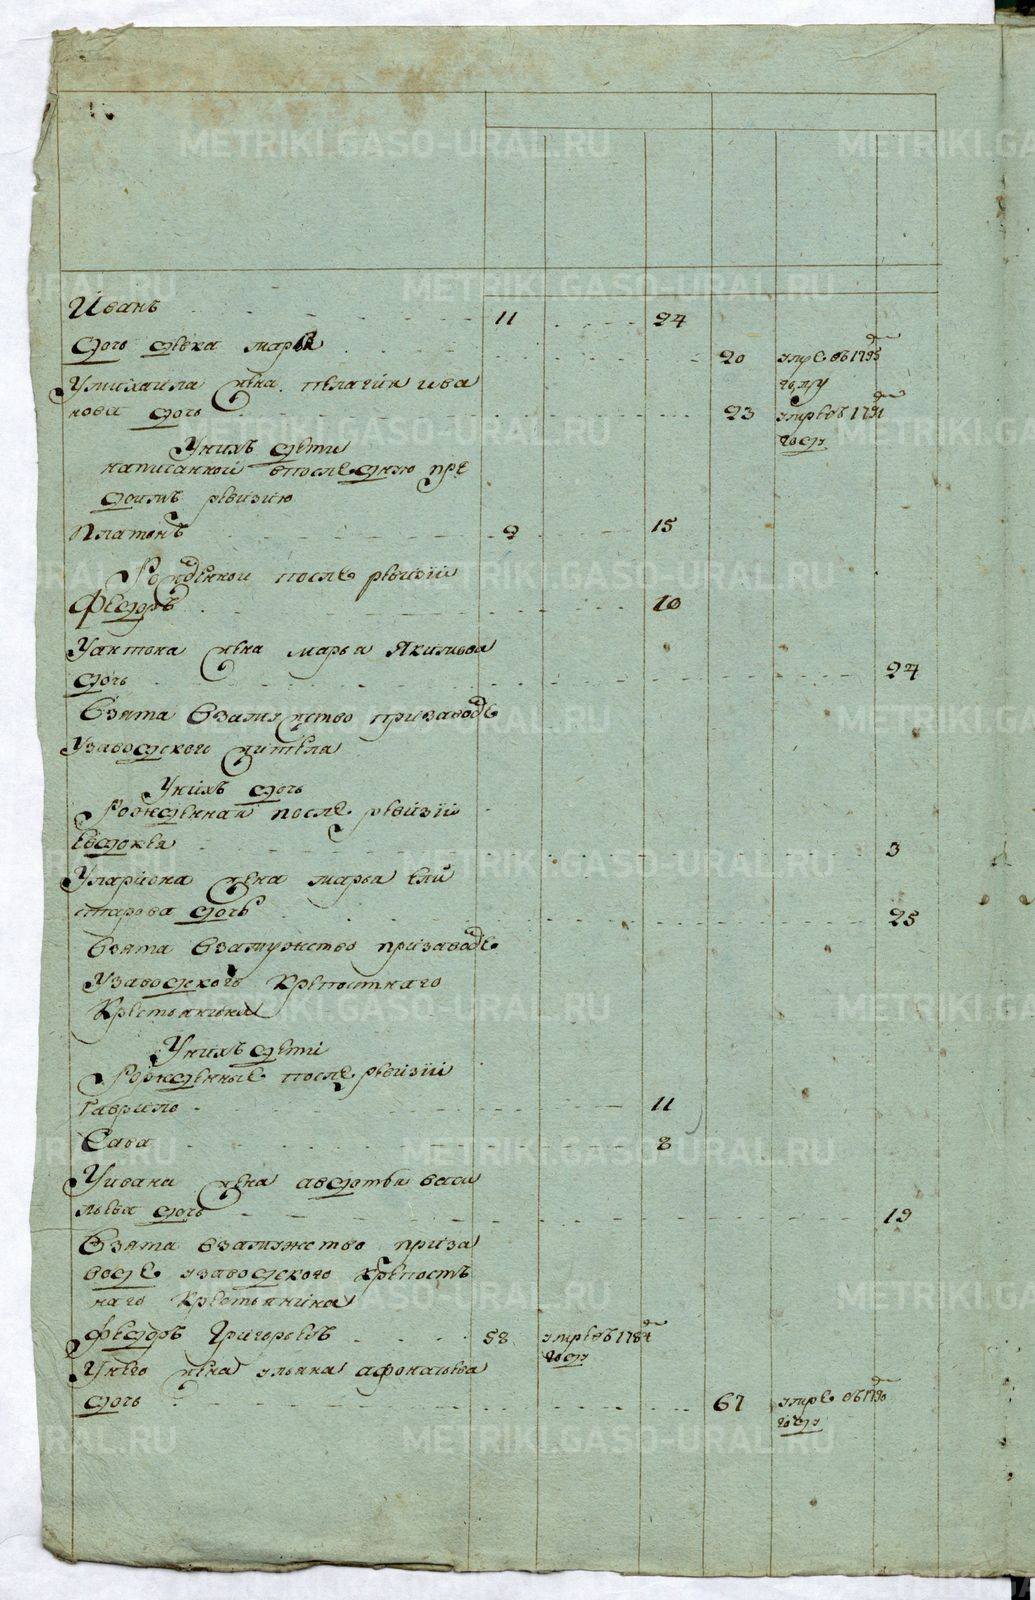 Иванъ 11 24
дочь девка марья 20 умре въ 1795
году
Умихаила жена пелагия ива
нова дочь 23 умре въ 1791
году
Унихъ дети
написанной впоследнюю пре
домъ ревизию
Платонъ 2 15
Рожденной после ревизии
Федоръ 10
Уантона жена марья Якимова
дочь 24
Взята взамужство призаводе
Узаводского жителя
Унихъ дочь
Рожденная после ревизии
Евдокея 3
Улариона жена марья ели
старова дочь 25
Взята взамужство призаводе
Узаводского крепостнаго
Крестьянина
Унихъ дети
Рожденные после ревизии
Гаврило 11
Сава 8
Уивана жена авдотья васи
льева дочь 19
Взята взамужство приза
воде узаводского крепостъ
наго крестьянина
Федоръ Григорьевъ 58 умре въ 1784
году
Унего жена ульяна афонасьева
дочь 67 умре въ 1790
году
METRIKI.GASO-URAL.RU